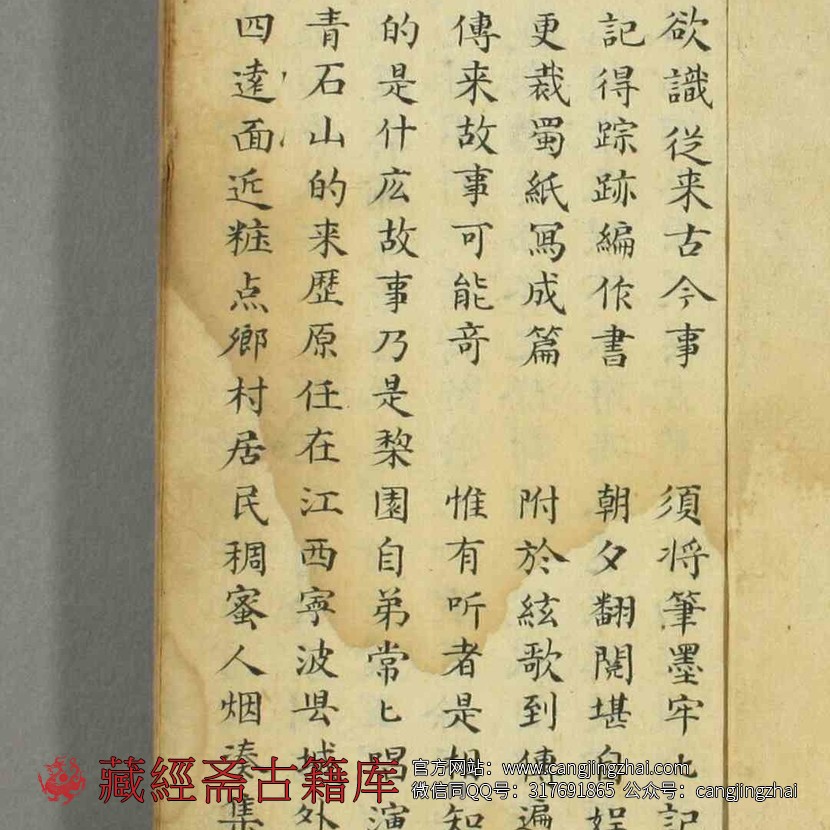 欲識從来古今事　須將筆墨牢匕記
記得踪跡編作書　朝夕翻閱堪自娱
更裁蜀紙寫成篇　附於絃歌到傳遍
傳来故事可能竒　惟有听者是相知
的是什庅故事乃是梨園自弟常匕唱演
青石山的来歷原任在江西寜波县城外
四逹面近粧点鄉村居民稠蜜人烟湊集
藏經斋古籍库
官方网站：www.cangjingzhai.com
微信同QQ号：317691865 公众号：cangjingzhai